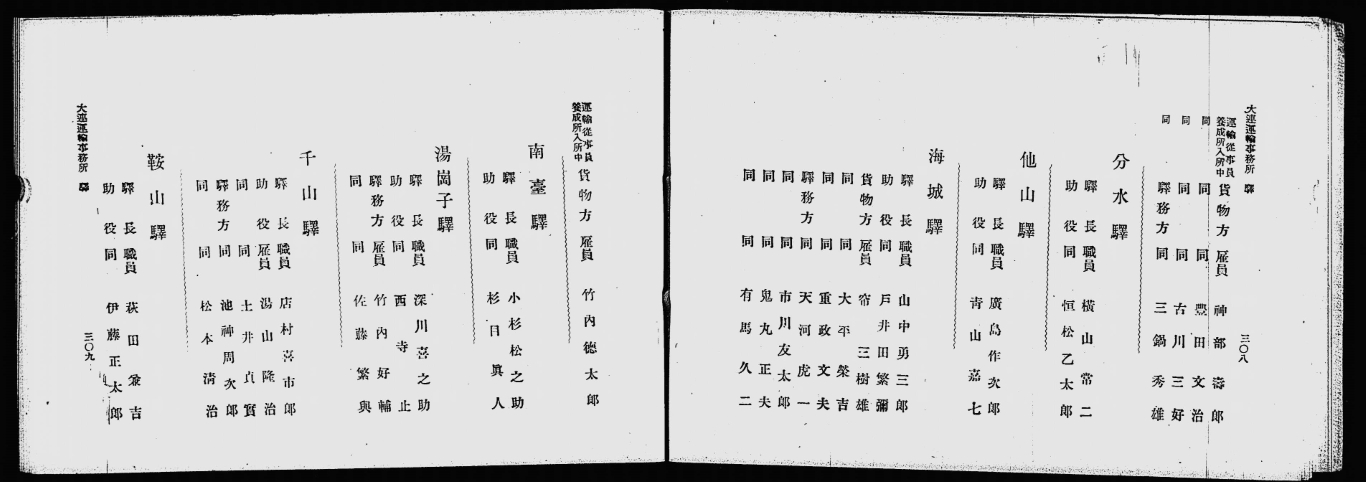 大連運輸事務所 驛
三〇八
運輸從事員養成所入所中 貨物方 雇員 神部壽郎
同 同 同 豊田文治
同 同 同 古川三好
同 驛務方 同 三鍋秀雄
分水驛
驛長 職員 橫山常二
助役 同 恒松乙太郎
他山驛
驛長 職員 廣島作次郎
助役 同 靑山嘉七
海城驛
驛長 職員 山中勇三郎
助役 同 戶井田繁彌
貨物方 雇員 帘三樹雄
同 同 大平榮吉
同 同 重政文夫
驛務方 同 天河虎一
同 同 市川友太郎
同 同 鬼丸正夫
同 同 有馬久二
運輸從事員養成所入所中 貨物方 雇員 竹內德太郎
南臺驛
驛長 職員 小杉松之助
助役 同 杉日眞人
湯崗子驛
驛長 職員 深川喜之助
助役 同 西寺止
驛務方 雇員 竹內好輔
同 同 佐藤繁與
千山驛
驛長 職員 店村喜市郎
助役 雇員 湯山隆治
同 同 土井貞實
驛務方 同 池神周次郎
同 同 松本淸治
鞍山驛
驛長 職員 萩田兼吉
助役 同 伊藤正太郎
大連運輸事務所 驛
三〇九